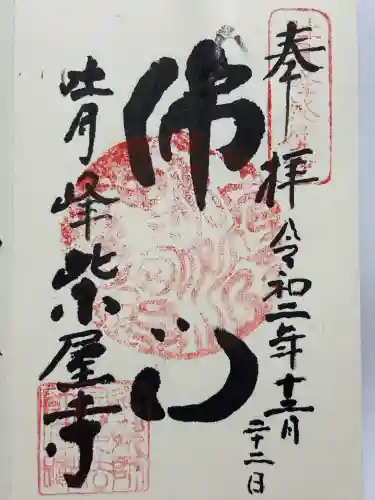 奉拝 令和二年十二月
二十二日
佛心
吐月峰 柴屋寺